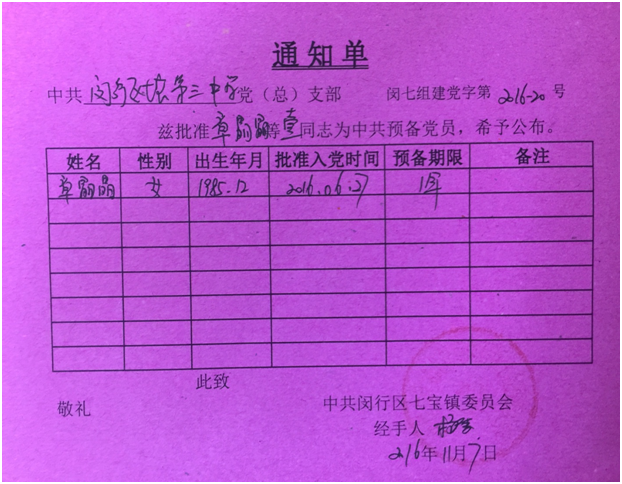 通知单
中共 闵行区七宝第三中学 党（总）支部 闵七组建党字第 2016-20 号
兹批准 章 等 壹 同志为中共预备党员，希予公布。
姓名 性别 出生年月 批准入党时间 预备期限 备注
章 晶 女 1985.12 2016.06.27 1年
此致
敬礼 中共闵行区七宝镇委员会
经手人
2016年11月7日